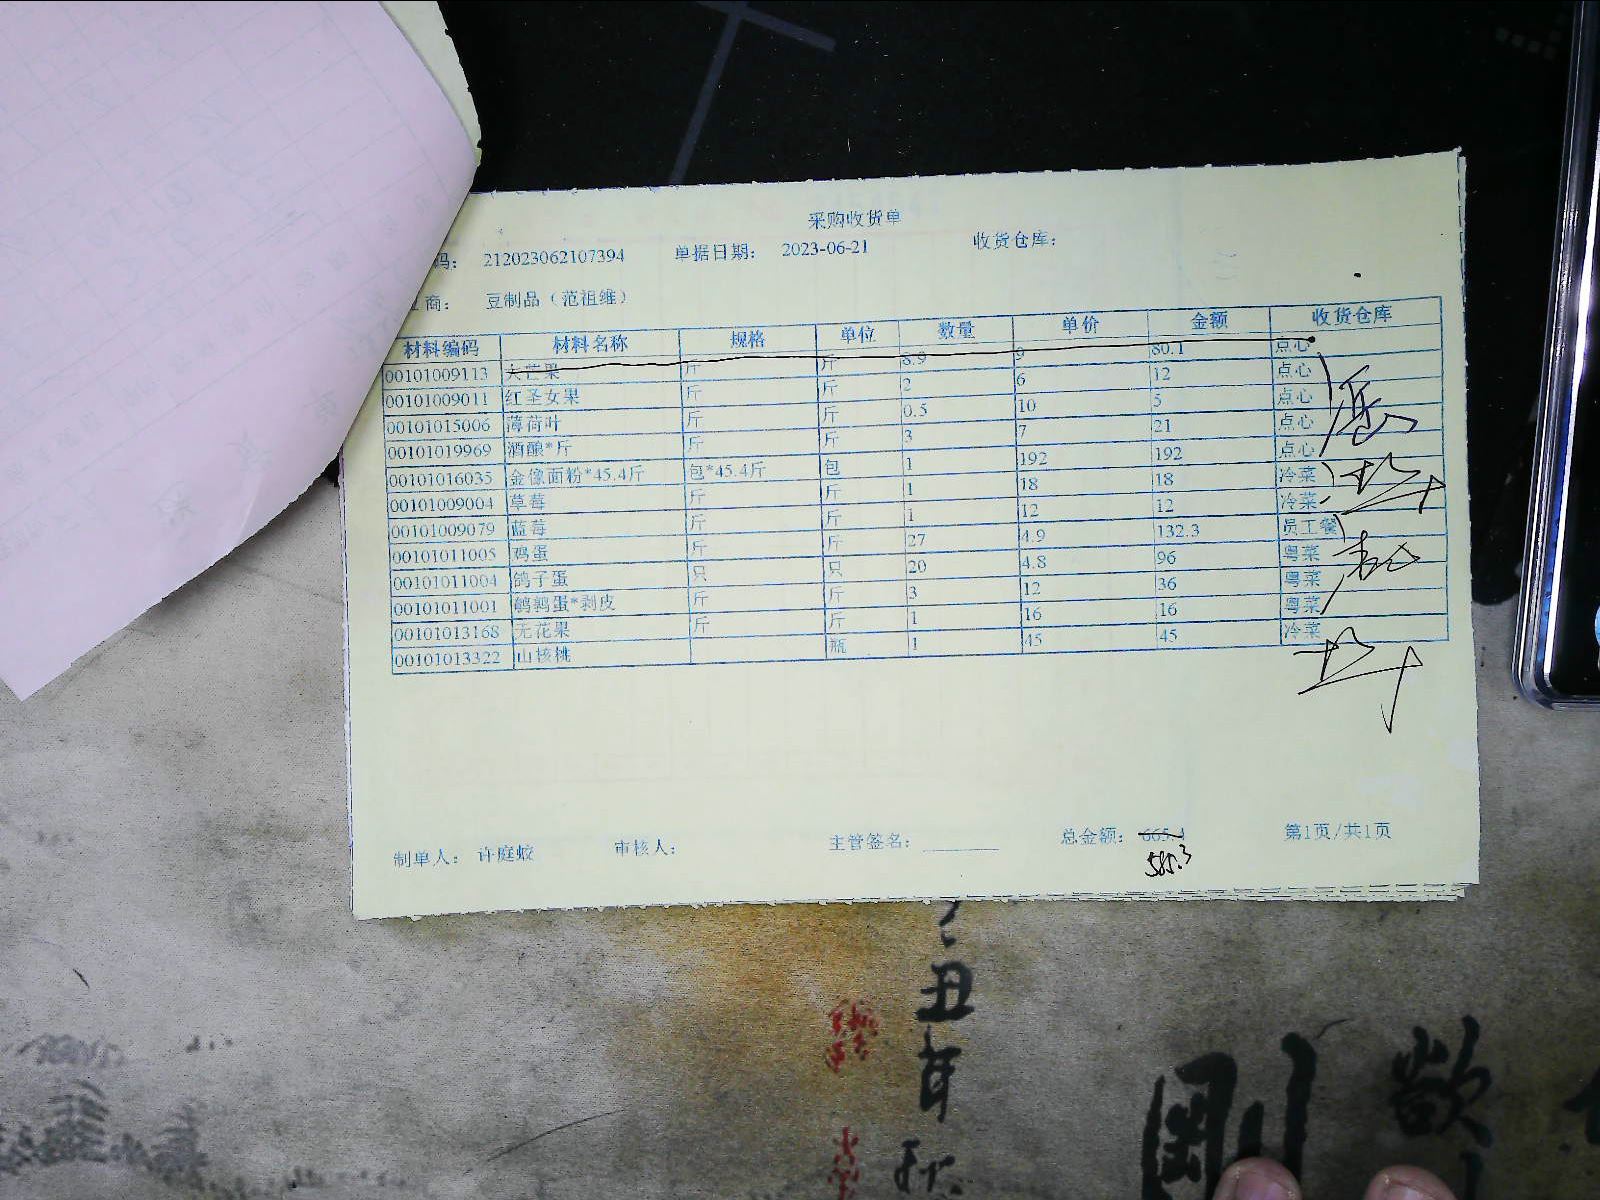 采购收货单
码： 212023062107394 单据日期： 2023-06-21 收货仓库：
商： 豆制品（范祖维）
材料编码 材料名称 规格 单位 数量 单价 金额 收货仓库
00101009113 大芒果 斤 斤 8.9 9 80.1 点心
00101009011 红圣女果 斤 斤 2 6 12 点心
00101015006 薄荷叶 斤 斤 0.5 10 5 点心
00101019969 酒酿*斤 斤 斤 3 7 21 点心
00101016035 金像面粉*45.4斤 包*45.4斤 包 1 192 192 点心
00101009004 草莓 斤 斤 1 18 18 冷菜
00101009079 蓝莓 斤 斤 1 12 12 冷菜
00101011005 鸡蛋 斤 斤 27 4.9 132.3 员工餐
00101011004 鸽子蛋 只 只 20 4.8 96 粤菜
00101011001 鹌鹑蛋*剥皮 斤 斤 3 12 36 粤菜
00101013168 无花果 斤 斤 1 16 16 粤菜
00101013322 山核桃 瓶 1 45 45 冷菜
制单人： 许庭蛟 审核人： 主管签名： 总金额： 665.4 第1页/共1页
585.3
丑年
秋
剛
欲